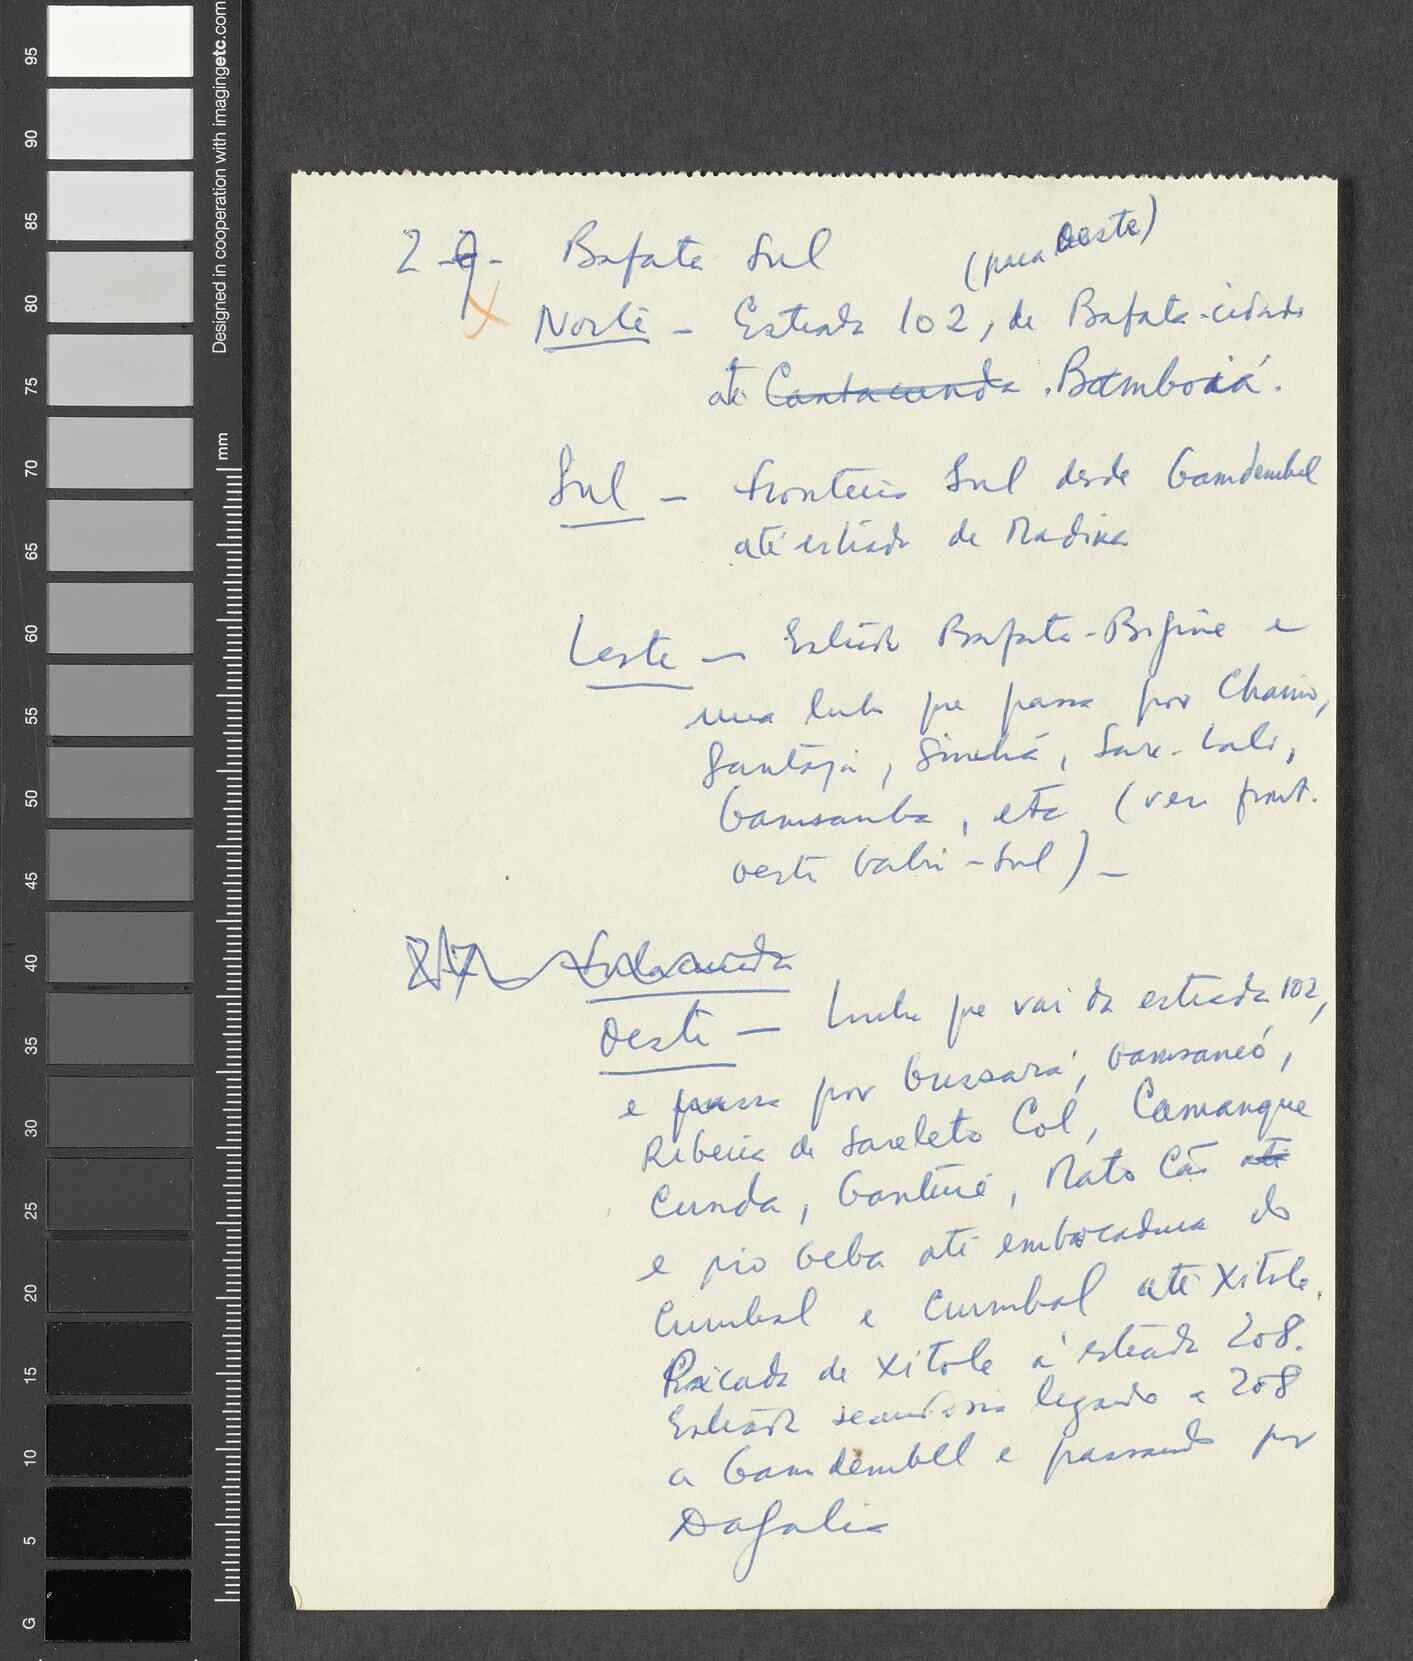 95
90
85
80
75
70
65
60
55
50
45
40
35
30
25
20
15
10
5
G
Designed in cooperation with imagingetc.com
mm
2 - 9 - Bafata Sul (para oeste)
Norte - Estrada 102, de Bafata-cidade
até Cantacunda Bambaiá.
Sul - fronteira Sul desde Gamdembel
até estrada de Madina
Leste - Estrada Bafata-Bigine e
uma linha que passa por Chamo,
Cantája, Sincha, Sare-Lali,
Gamsamba, etc (ver front.
oeste Gabu-Sul) -
Oeste - Linha que vai da estrada 102,
e passa por Gussará, Gamsaneó,
Ribeira de Sareleto Col, Camanque
Cunda, Ganturé, Mato Cão até
e rio Geba até embocadura do
Curubal e Curubal até Xitole.
Picada de Xitole à estrada 208.
Estrada secundária ligando a 208
a Gamdembell e passando por
Dafalia